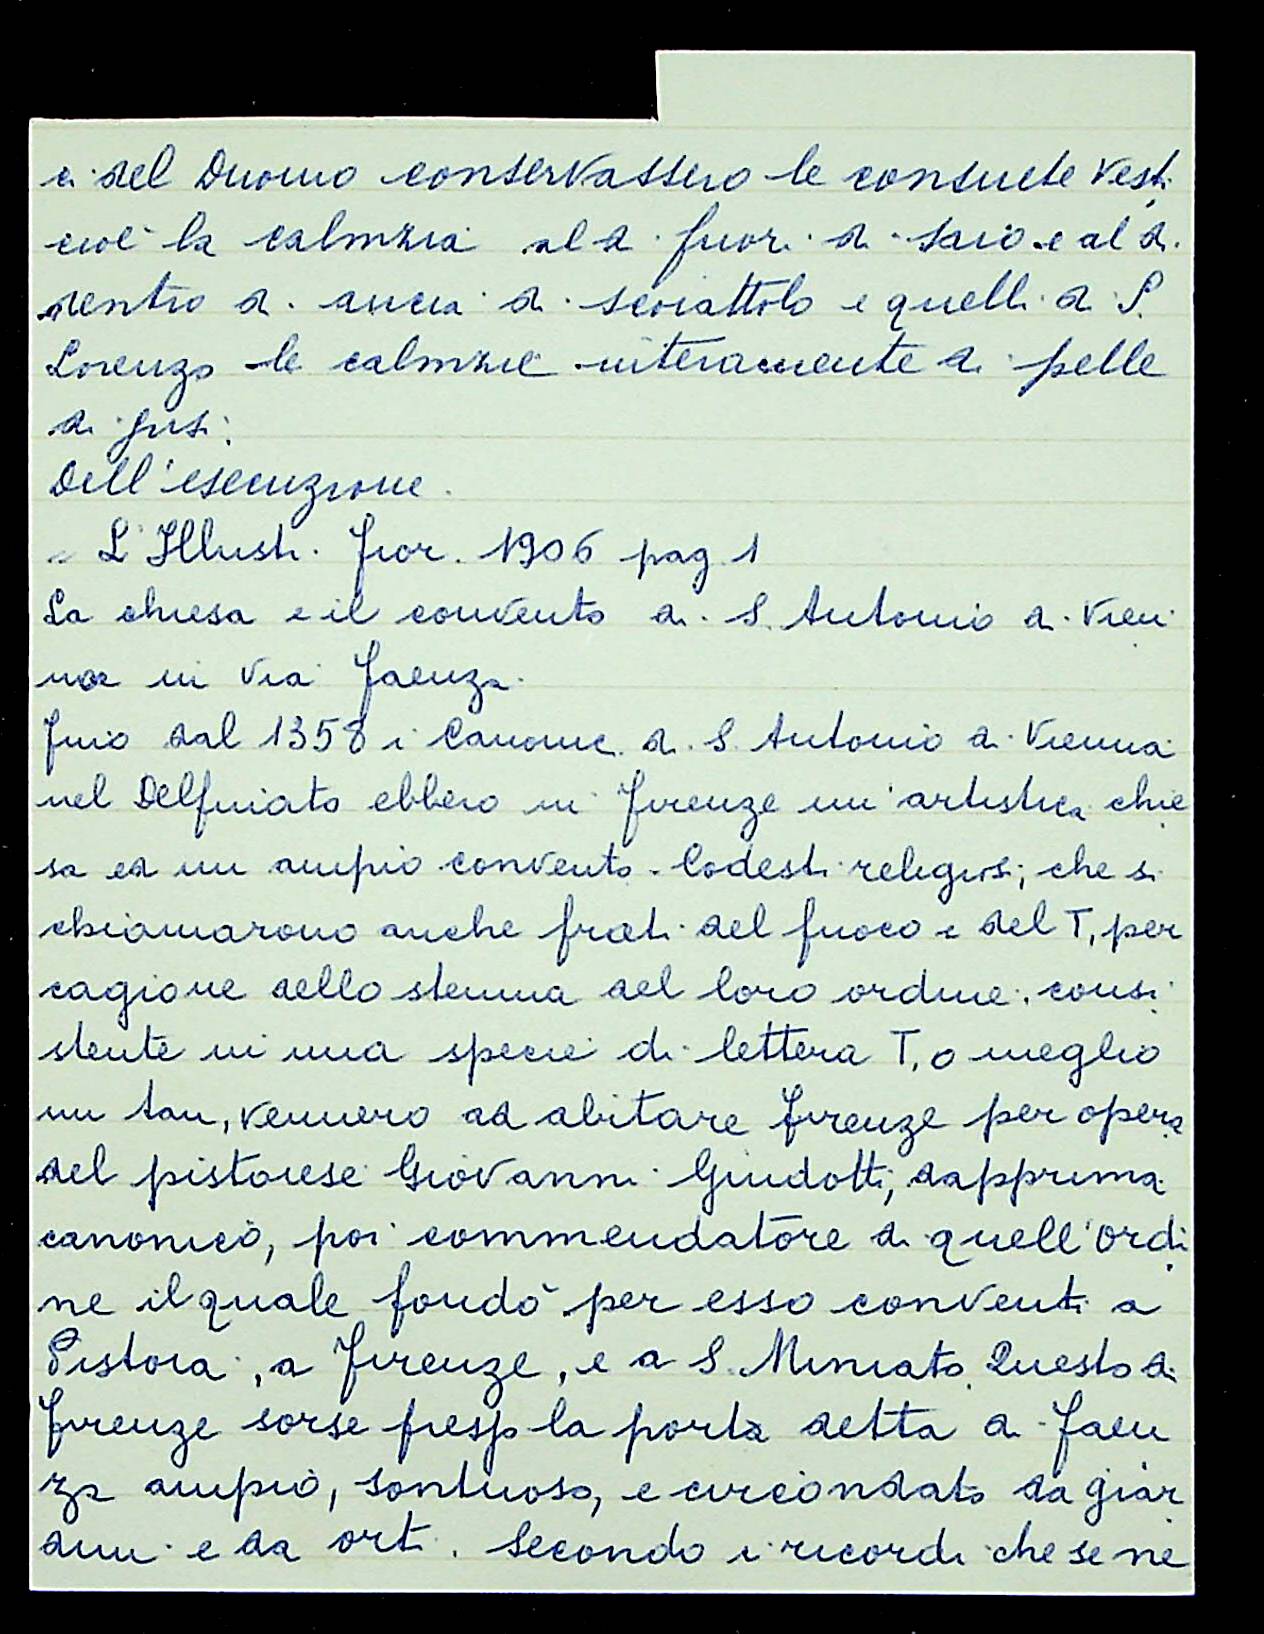 ci del Duomo conservassero le consuete vesti
cioè la calmzia al di fuori di saio e al di
dentro di ancia di scoiattolo e quelli di S.
Lorenzo le calmzie interamente di pelle
di gusi.
Dell'esecuzione.
L'Illustr. fior. 1906 pag. 1
La chiesa e il convento di S. Antonio di Vien
na in Via Faenza.
Fino dal 1358 i Canonic. di S. Antonio di Vienna
nel Delfinato ebbero in Firenze un'artistica chie
sa ed un ampio convento. Codesti religiosi, che si
chiamarono anche frati del fuoco e del T, per
cagione dello stemma del loro ordine, consi
stente in una specie di lettera T, o meglio
un tau, vennero ad abitare Firenze per opera
del pistoiese Giovanni Guidotti, dapprima
canonico, poi commendatore di quell'ordi
ne il quale fondò per esso conventi a
Pistoia, a Firenze, e a S. Miniato. Questo di
Firenze sorse presso la porta detta di Faen
za ampio, sontuoso, e circondato da giar
dini e da orti. Secondo i ricordi che se ne